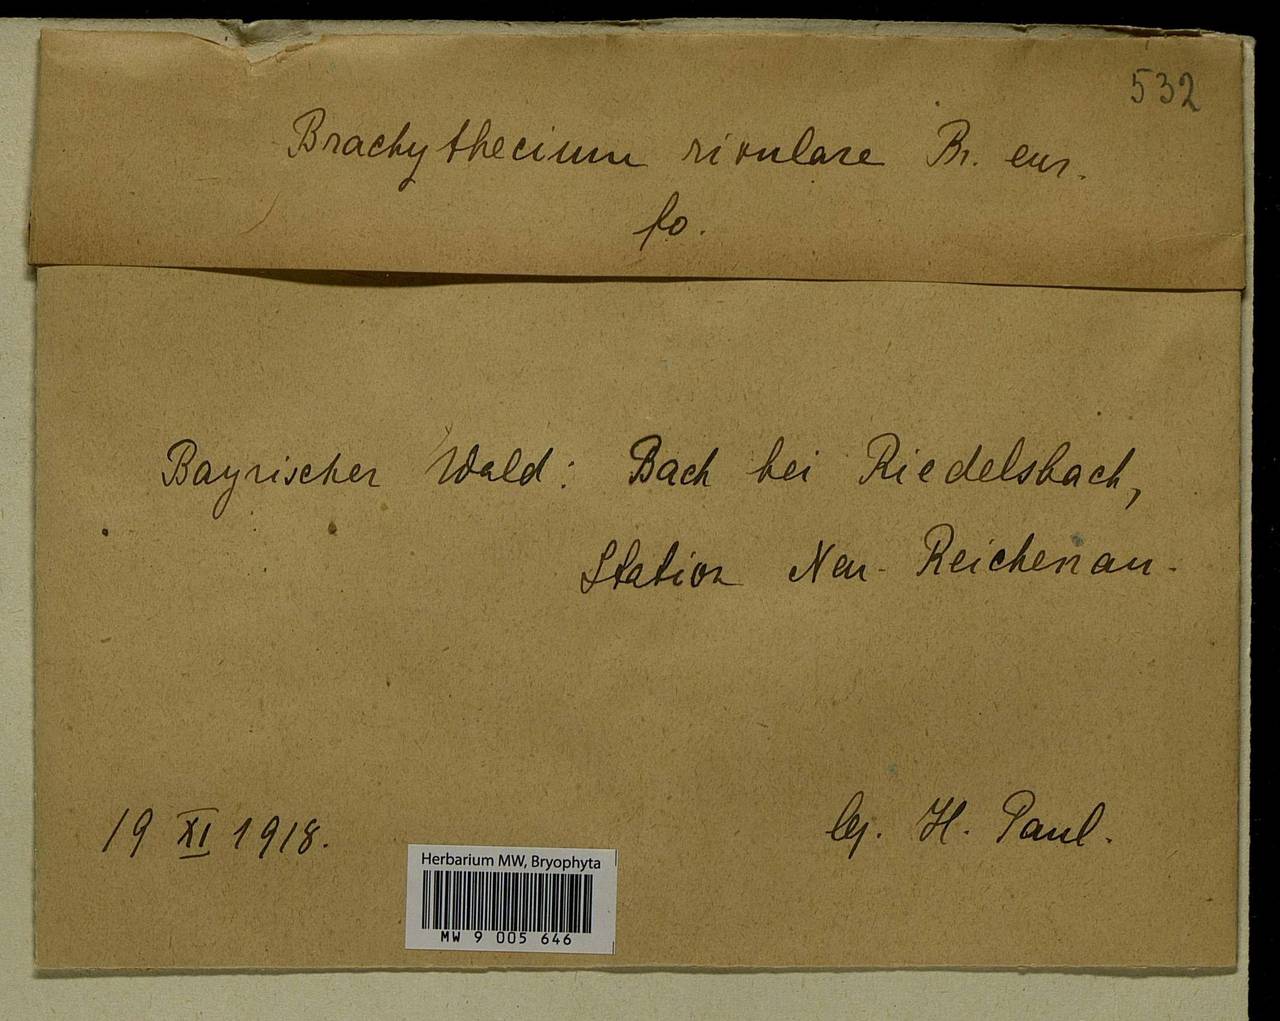 532
Brachythecium rivulare Br. eur.
fo.
Bayrischer Wald: Bach bei Riedelsbach,
Station Neu-Reichenau.
19 XI 1918.
lg. H. Paul.
Herbarium MW, Bryophyta
MW 9 005 646